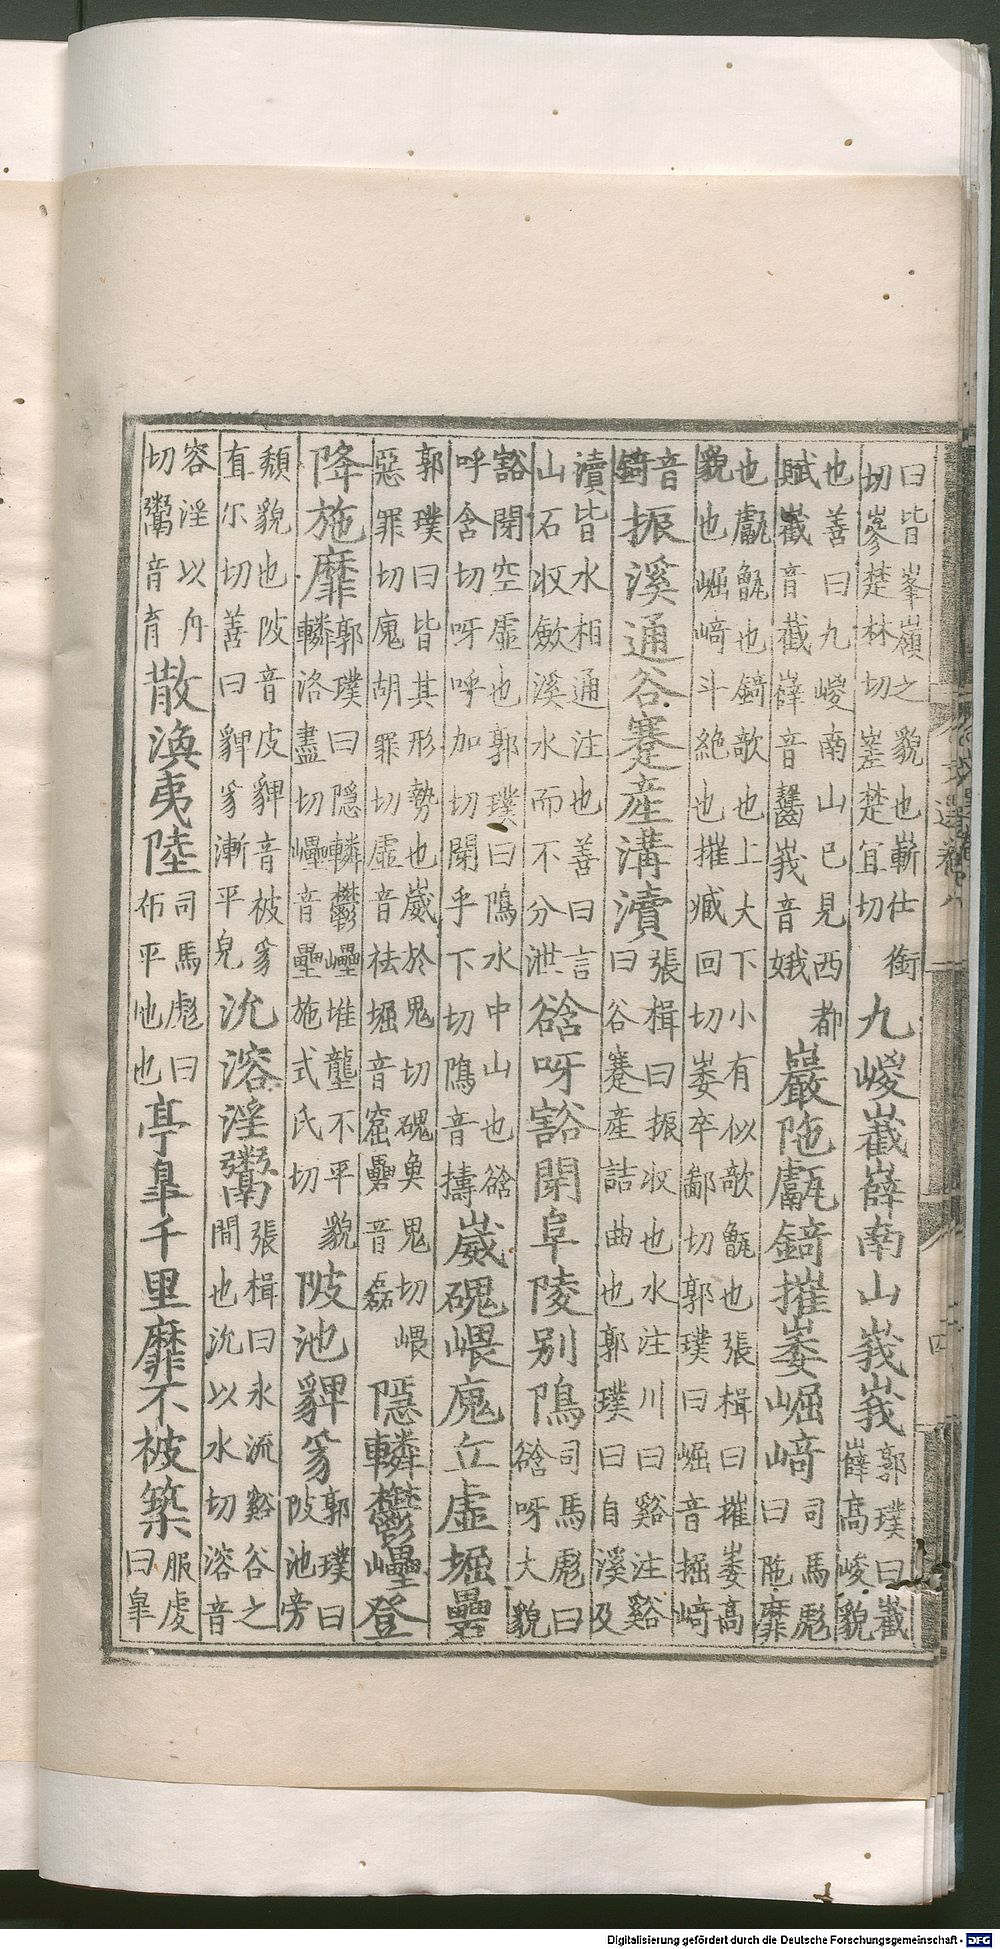 曰皆峯嶺之貌也嶄仕銜
切嵾楚林切嵳楚宜切
九嵕嶻嶭南山峩峩
郭璞曰嶻
嶭高峻貌
也善曰九嵕南山已見西都
賦嶻音截嶭音齧峩音娥
巖陁甗錡摧崣崛崎
司馬彪
曰陁靡
也甗甑也錡欹也上大下小有似欹甑也張楫曰摧崣高
貌也崛崎斗絶也摧臧回切崣卒鄙切郭璞曰崛音掘崎
音
錡
振溪通谷蹇產溝瀆
張楫曰振收也水注川曰谿注谿
曰谷蹇產詰曲也郭璞曰自溪及
瀆皆水相通注也善曰言
山石收斂溪水而不分泄
谽呀豁閜阜陵别隝
司馬彪曰
谽呀大貌
豁閜空虛也郭璞曰隝水中山也谽
呼含切呀呼加切閜乎下切隝音擣
崴磈㟪廆丘虛堀礨
郭璞曰皆其形勢也崴於鬼切磈魚鬼切㟪
惡罪切廆胡罪切虛音袪堀音窟礨音磊
隱轔鬱㠥登
降施靡
郭璞曰隱轔鬱㠥堆壟不平貌
轔洛盡切㠥音壘施式氏切
陂池貏豸
郭璞曰
陂池旁
頹貌也陂音皮貏音被豸
直尔切善曰貏豸漸平皃
沇溶淫鬻
張楫曰水流谿谷之
間也沇以水切溶音
容淫以舟
切鬻音育
散渙夷陸
司馬彪曰
布平地也
亭皐千里靡不被築
服虔
曰皐
Digitalisierung gefördert durch die Deutsche Forschungsgemeinschaft - DFG